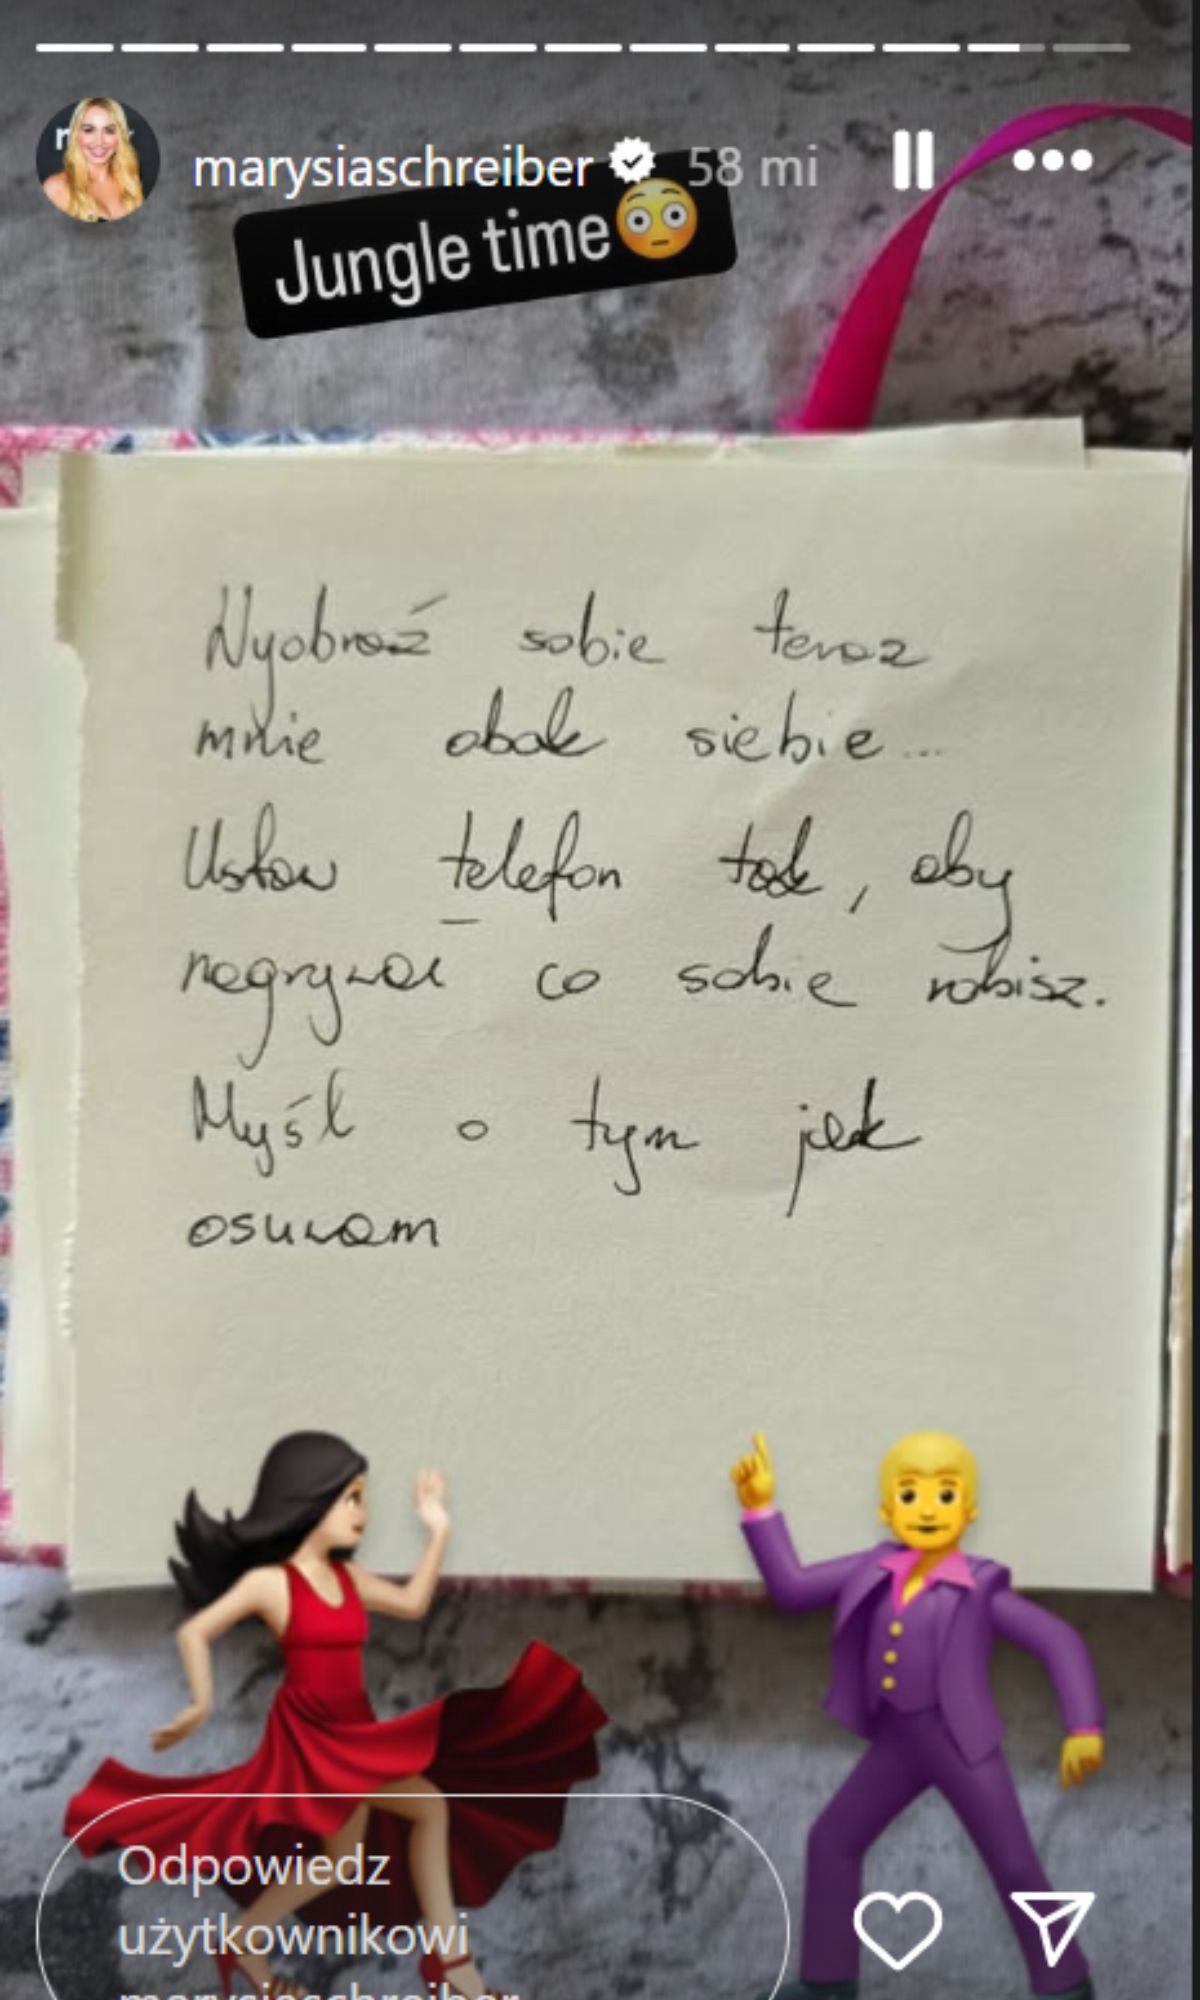 marysiaschreiber 58 mi
Jungle time😳
Wyobraź sobie teraz
mnie obok siebie...
Ustaw telefon tak, aby
nagrywał co sobie robisz.
Myśl o tym jak
osuwam
Odpowiedz
użytkownikowi
marysiaschreiber